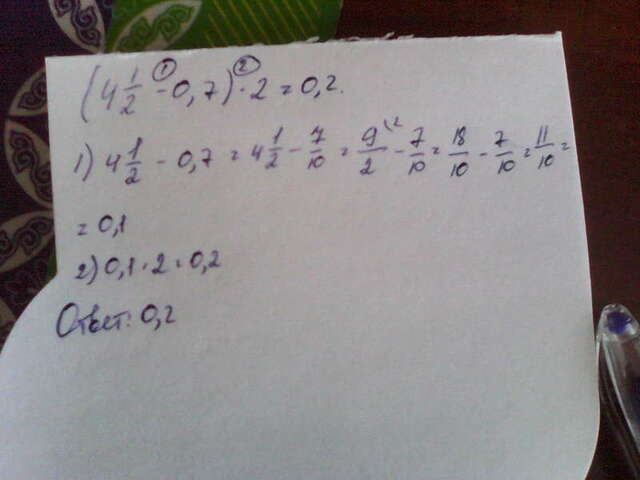 (4 1/2 - 0,7) · 2 = 0,2.
① ②
1) 4 1/2 - 0,7 = 4 1/2 - 7/10 = 9/2 \2 - 7/10 = 18/10 - 7/10 = 11/10 =
= 0,1
2) 0,1 · 2 = 0,2
Ответ: 0,2